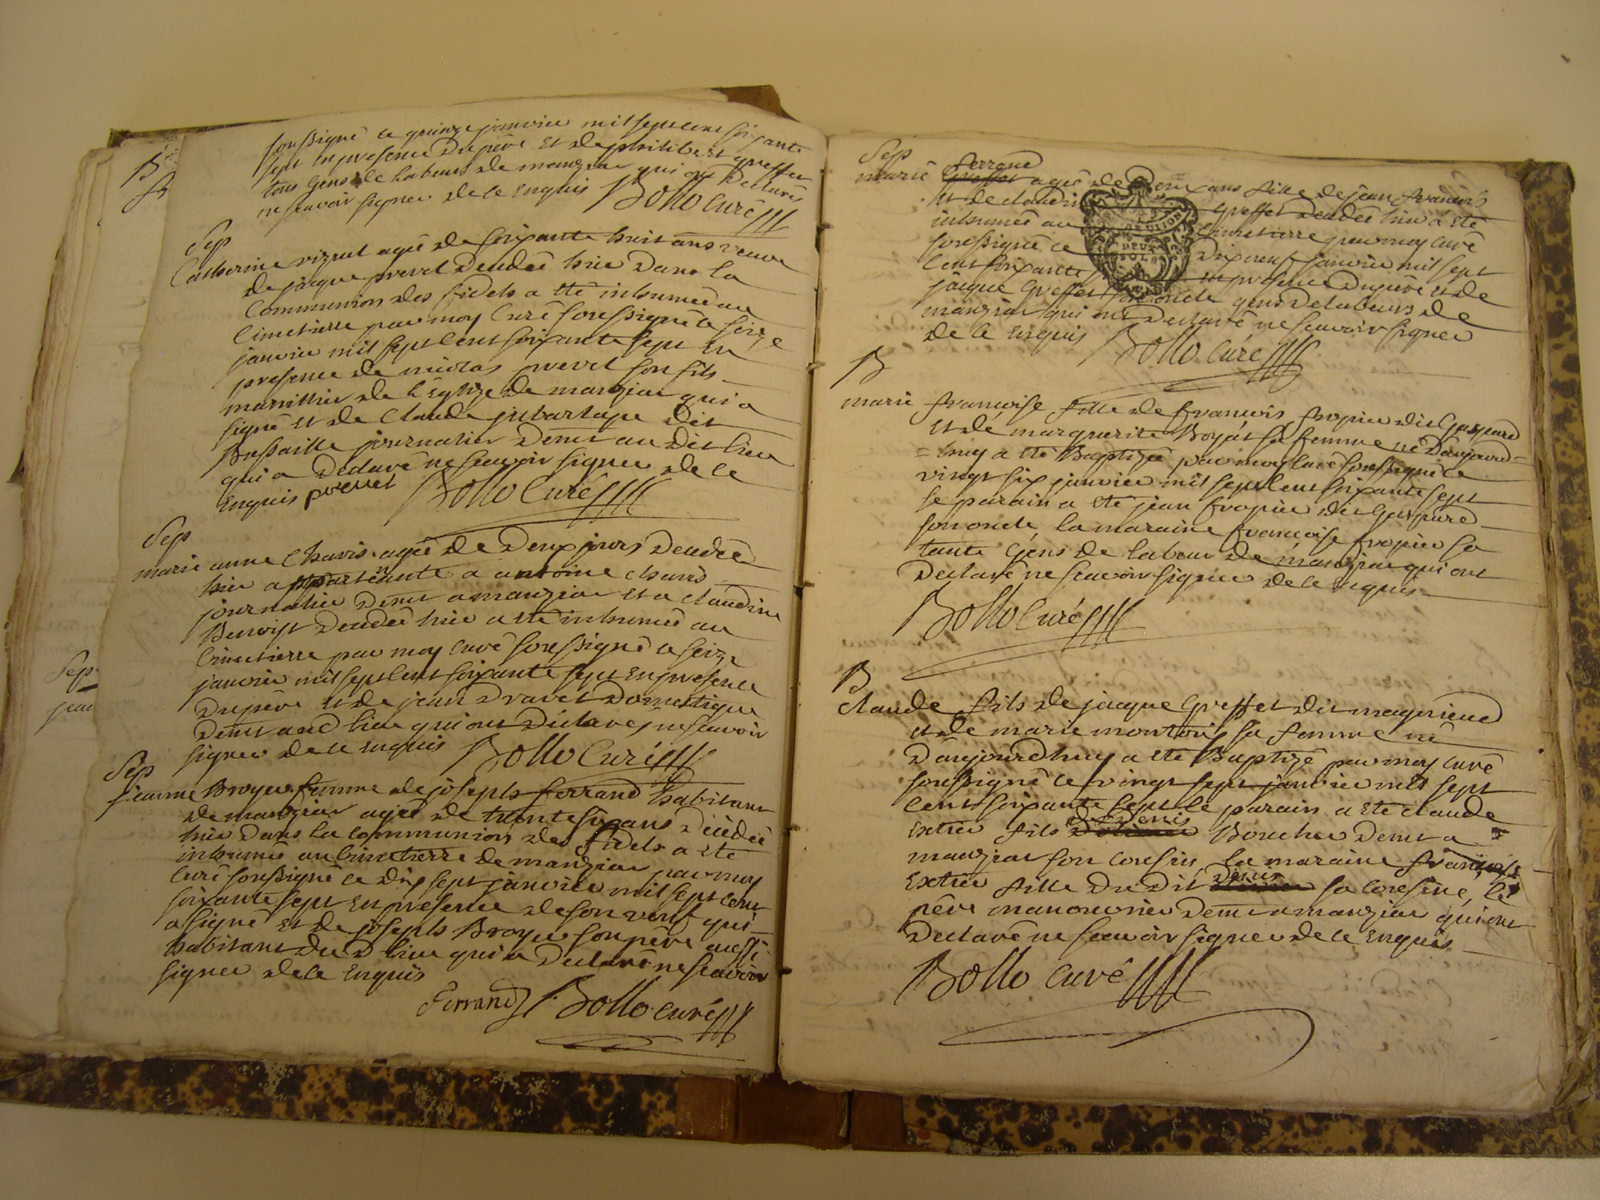 soussigné ce quinze janvier mil sept cent soixante
sept en presence du père et de philibert greffet
tous gens de labeur de manziat qui ont declarés
ne scavoir signer de ce enquis Bollo Curé
Sep
Catherine viguet agée de soixante huit ans veuve
de jaque prevel decedée hier dans la
Communion des fidels a été inhumée au
Cimetierre par moy Curé soussigné le seize
janvier mil sept cent soixante sept en
presence de nicolas prevel son fils
manillier de l'église de manziat qui a
signé et de Claude jubartage dit
Bussaille journalier demt au dit lieu
qui a declaré ne scavoir signer de ce
enquis prevel Bollo Curé
Sep
marie anne Chavis agée de deux jours decedée
hier appartenante a antoine chavis
journalier demt a manziat et a claudine
Benoist decedée hier a été inhumée au
Cimetierre par moy curé soussigné le seize
janvier mil sept cent soixante sept en presence
du père et de jean dravet domestique
demt aud lieu qui ont declarés ne scavoir
signer de ce enquis Bollo Curé
Sep
jeanne Broyer femme de joseph ferrand habitant
de manziat agée de trente six ans decedée
hier dans la communion des fidels a été
inhumée au Cimetierre de manziat par moy
Curé soussigné ce dix sept janvier mil sept cent
soixante sept en presence de son veuf qui
a signé et de joseph Broyer son père aussi
habitant du d lieu qui a declaré ne scavoir
signer de ce enquis
Ferrand Bollo curé
Sep
ferrand
marie greffet agée de deux ans fille de jean françois
et de claudine greffet decedée hier a été
inhumée au cimetierre par moy curé
soussigné ce dix neuf janvier mil sept
cent soixante en presence du père et de
jaque greffet son oncle gens de labeurs de
manziat qui ont declaré ne scavoir signer
de ce enquis Bollo Curé
B
marie françoise fille de françois fropier dit gaspard
et de marguerite Boyat sa femme né d'aujourd=
=huy a été Baptizé par moy curé soussigné ce
vingt six janvier mil sept cent soixante sept
le parain a été jean fropier dit gaspard
son oncle la maraine françoise fropier sa
tante gens de labeur de manziat qui ont
declaré ne scavoir signer de ce enquis
Bollo Curé
B
claude fils de jaque greffet dit
et de marie montois sa femme né
d'aujourd'huy a été Baptizé par moy curé
soussigné ce vingt sept janvier mil sept
cent soixante sept le parain a été claude
Extier fils de denis Boucher demt a
manziat son cousin la maraine françoise
Extier fille du dit denis sa cousine, le
père manouvrier demt a manziat qui ont
declaré ne scavoir signer de ce enquis
Bollo curé